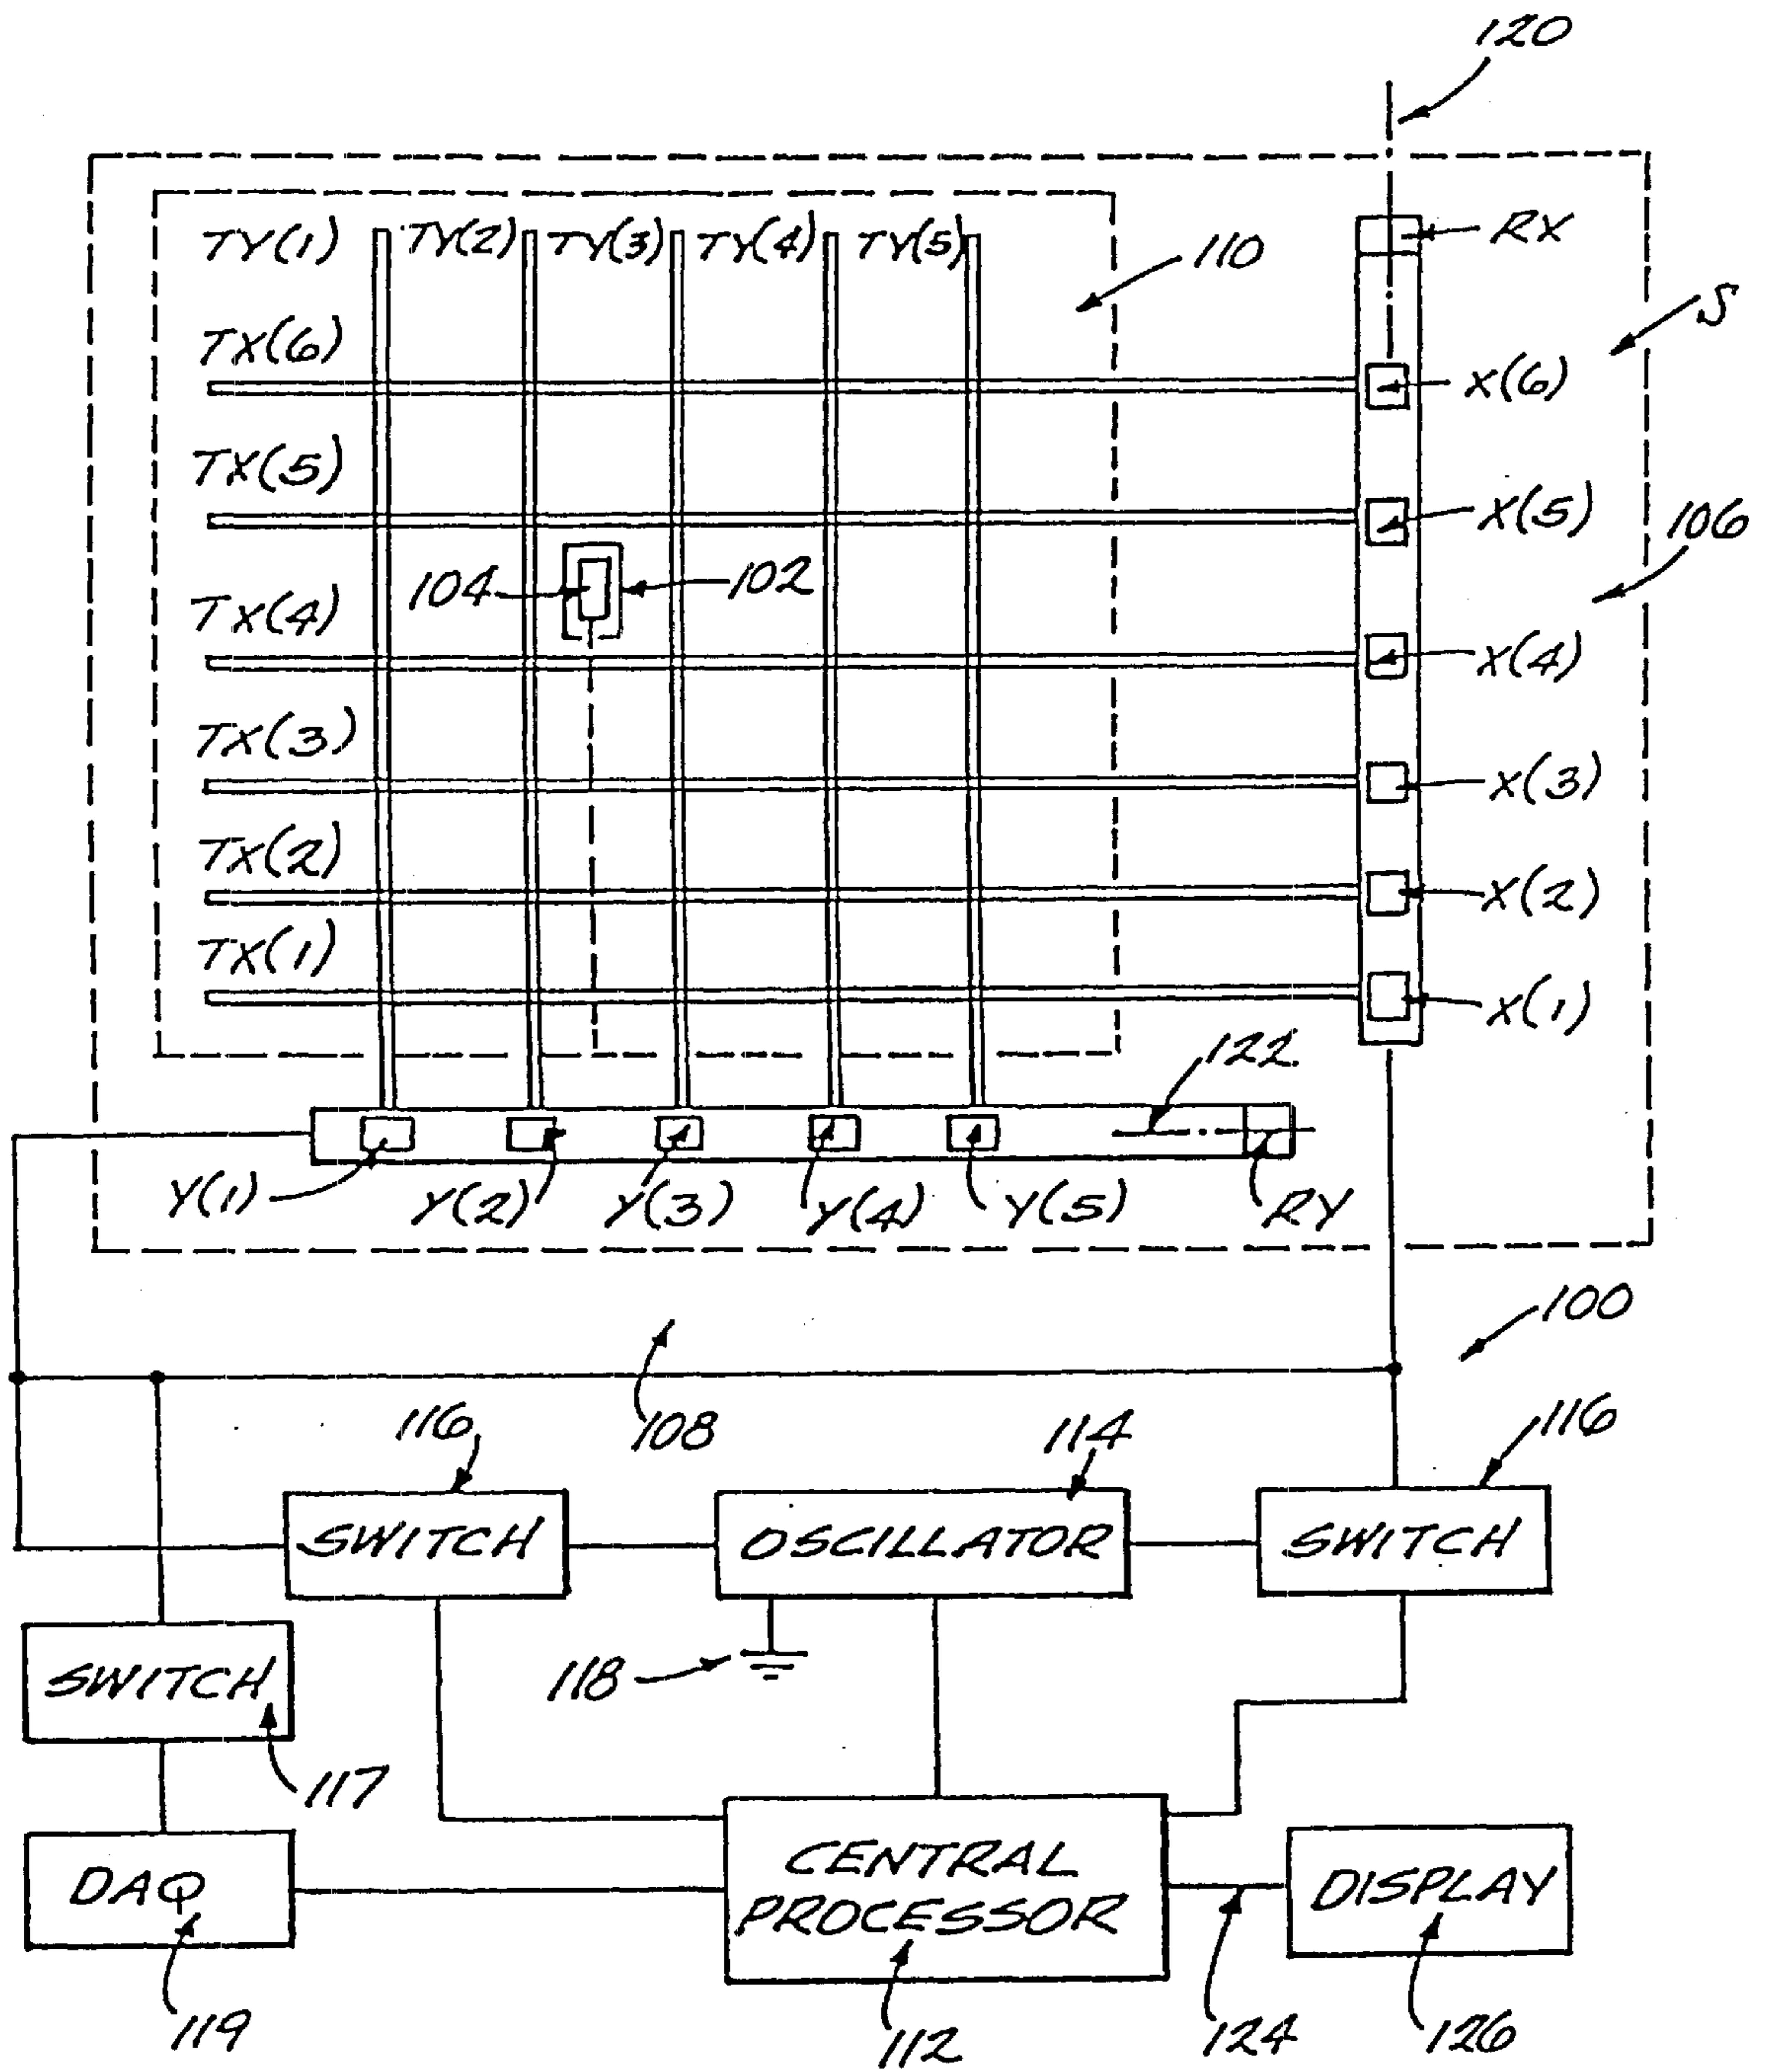 120
TY(1) TY(2) TY(3) TY(4) TY(5)
RX
110
S
TX(6)
X(6)
TX(5)
X(5)
106
104
102
TX(4)
X(4)
TX(3)
X(3)
TX(2)
X(2)
TX(1)
X(1)
122
Y(1) Y(2) Y(3) Y(4) Y(5) RY
100
116
108
114
116
SWITCH
OSCILLATOR
SWITCH
118
SWITCH
117
CENTRAL
PROCESSOR
DAQ
DISPLAY
119
112
124
126